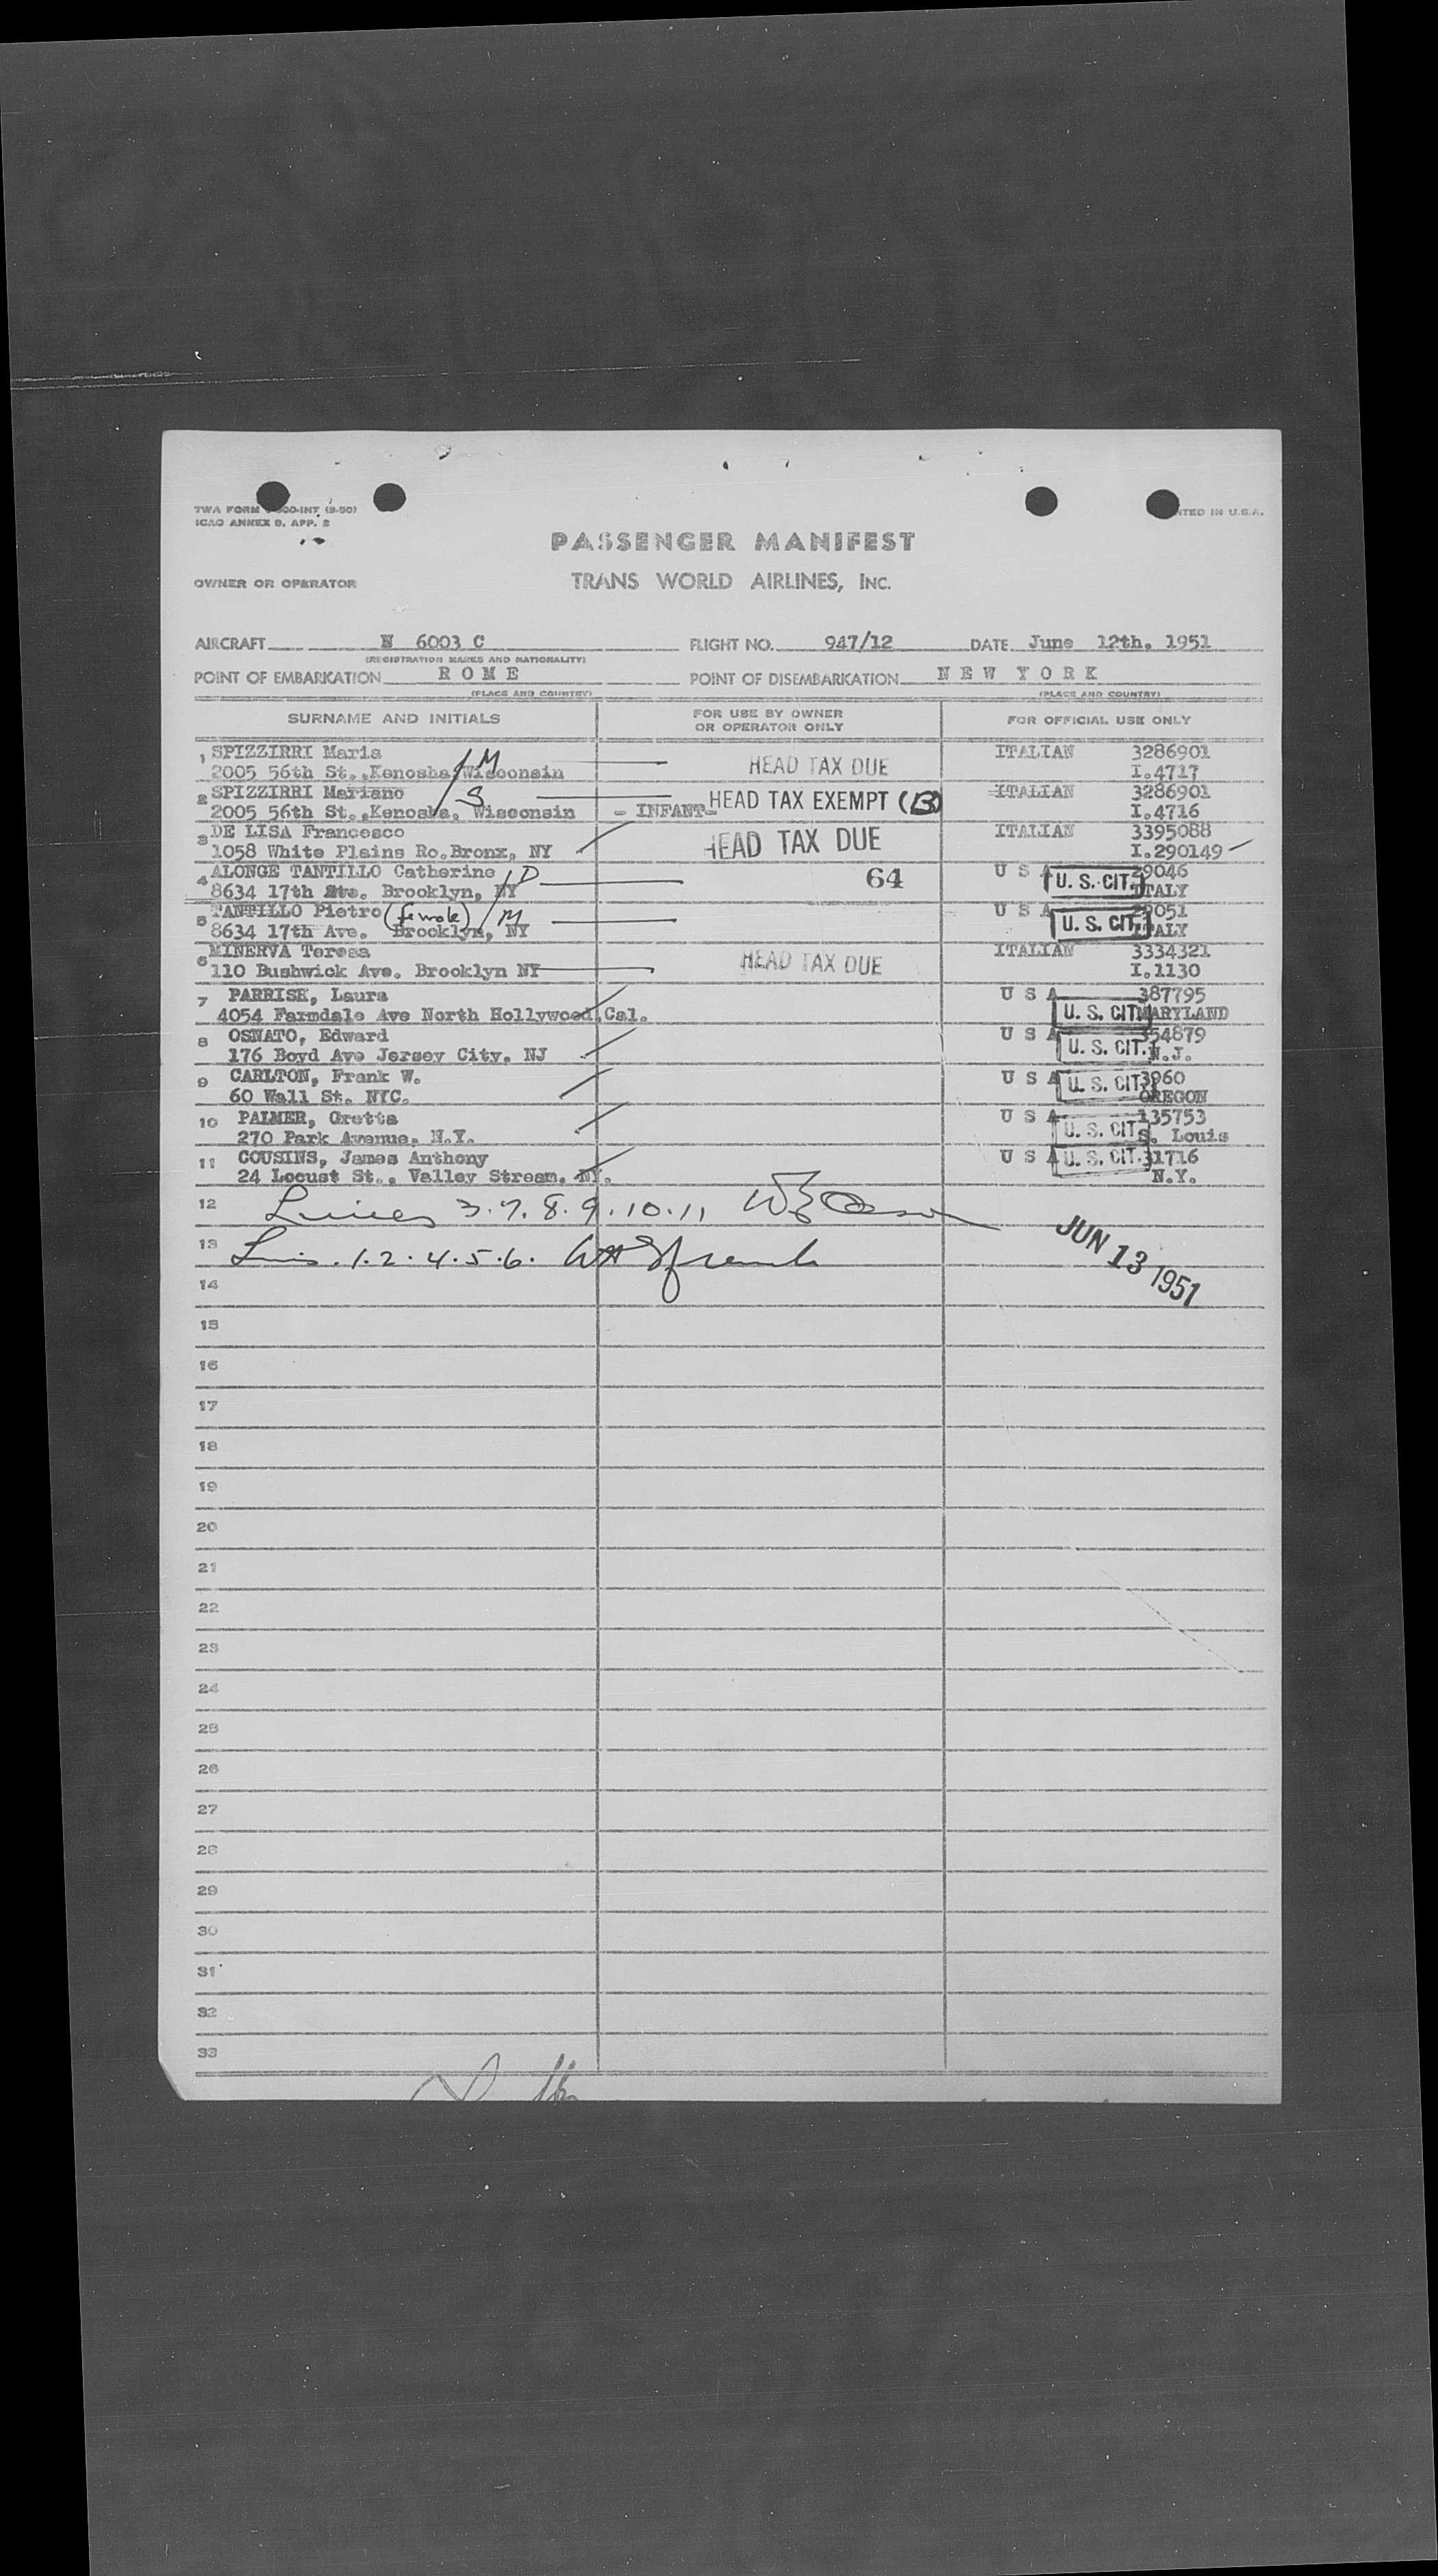 TWA FORM 00-INT (3-50)
ICAO ANNEX 9, APP. 2
NTED IN U.S.A.
PASSENGER MANIFEST
OWNER OR OPERATOR TRANS WORLD AIRLINES, INC.
AIRCRAFT N 6003 C FLIGHT NO. 947/12 DATE June 12th. 1951
(REGISTRATION MARKS AND NATIONALITY)
POINT OF EMBARKATION R O M E POINT OF DISEMBARKATION N E W Y O R K
(PLACE AND COUNTRY) (PLACE AND COUNTRY)
SURNAME AND INITIALS FOR USE BY OWNER OR OPERATOR ONLY FOR OFFICIAL USE ONLY
1 SPIZZIRRI Maria / M HEAD TAX DUE ITALIAN 3286901
2005 56th St.,Kenosha, Wisconsin I.4717
2 SPIZZIRRI Mariano / S HEAD TAX EXEMPT (B) ITALIAN 3286901
2005 56th St.,Kenosha, Wisconsin - INFANT- I.4716
3 DE LISA Francesco HEAD TAX DUE ITALIAN 3395088
1058 White Plains Ro.Bronx, NY I.290149
4 ALONGE TANTILLO Catherine / D 64 U S A 29046
8634 17th Ave. Brooklyn, NY U. S. CIT. ITALY
5 TANTILLO Pietro (female) / M U S A 29051
8634 17th Ave. Brooklyn, NY U. S. CIT. ITALY
6 MINERVA Teresa HEAD TAX DUE ITALIAN 3334321
110 Bushwick Ave. Brooklyn NY I.1130
7 PARRISH, Laura U S A 387795
4054 Farmdale Ave North Hollywood,Cal. U. S. CIT. MARYLAND
8 OSNATO, Edward U S A 354879
176 Boyd Ave Jersey City, NJ U. S. CIT. N.J.
9 CARLTON, Frank W. U S A U. S. CIT. 3960
60 Wall St. NYC. OREGON
10 PALMER, Gretta U S A 135753
270 Park Avenue, N.Y. U. S. CIT. S. Louis
11 COUSINS, James Anthony U S A U. S. CIT. 31716
24 Locust St., Valley Stream, NY. N.Y.
12 Lines 3.7.8.9.10.11
13 Lines. 1.2.4.5.6.
JUN 13 1951
14
15
16
17
18
19
20
21
22
23
24
25
26
27
28
29
30
31
32
33